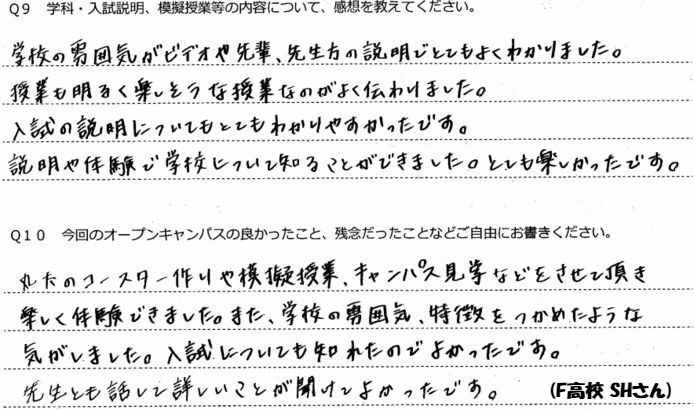 Q9 学科・入試説明、模擬授業等の内容について、感想を教えてください。
学校の雰囲気がビデオや先輩、先生方の説明でとてもよくわかりました。
授業も明るく楽しそうな授業なのがよく伝わりました。
入試の説明についてもとてもわかりやすかったです。
説明や体験で学校について知ることができました。とても楽しかったです。
Q10 今回のオープンキャンパスの良かったこと、残念だったことなどご自由にお書きください。
丸太のコースター作りや模擬授業、キャンパス見学などをさせて頂き
楽しく体験できました。また、学校の雰囲気、特徴をつかめたような
気がしました。入試についても知れたのでよかったです。
先生とも話して詳しいことが聞けてよかったです。 (F高校 SHさん)